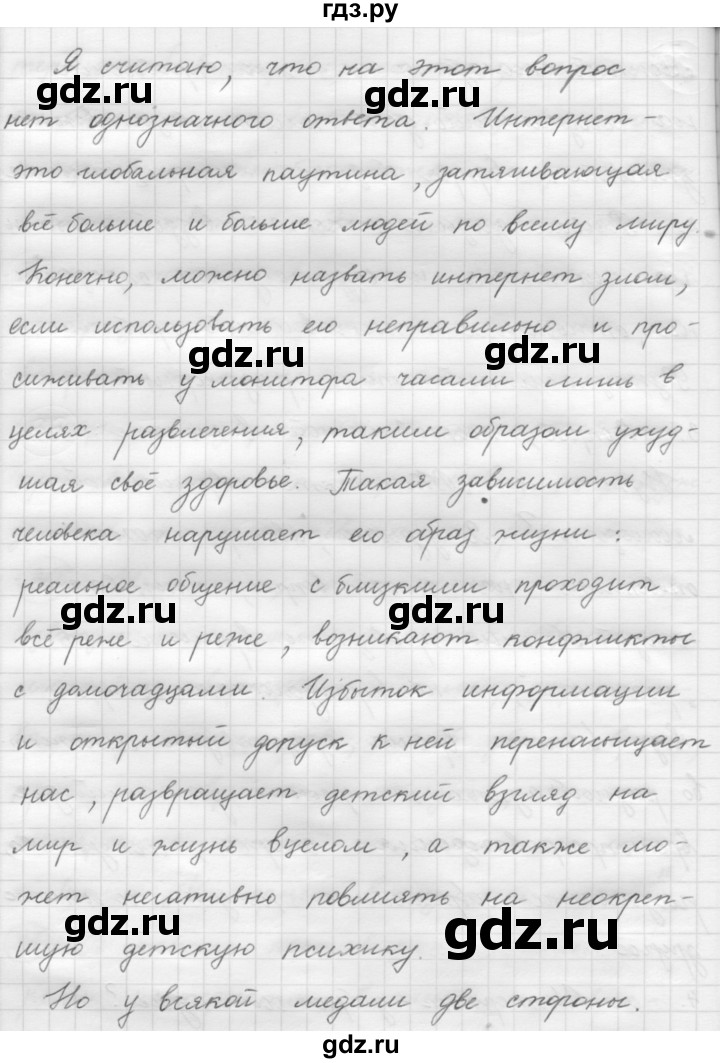 гдз.ру
Я считаю, что на этот вопрос
gdz.ru gdz.ru
нет однозначного ответа. Интернет-
это глобальная паутина, затягивающая
всё больше и больше людей по всему миру.
Конечно, можно назвать интернет злом,
если использовать его неправильно и про-
gdz.ru gdz.ru
сиживать у монитора часами лишь в
целях развлечения, таким образом ухуд-
шая своё здоровье. Такая зависимость
человека нарушает его образ жизни:
реальное общение с близкими проходит
gdz.ru gdz.ru
всё реже и реже, возникают конфликты
с домочадцами. Избыток информации
и открытый допуск к ней перенасыщает
нас, развращает детский взгляд на
мир и жизнь вцелом, а также мо-
жет негативно повлиять на неокреп-
gdz.ru gdz.ru
шую детскую психику.
Но у всякой медали две стороны.
gdz.ru